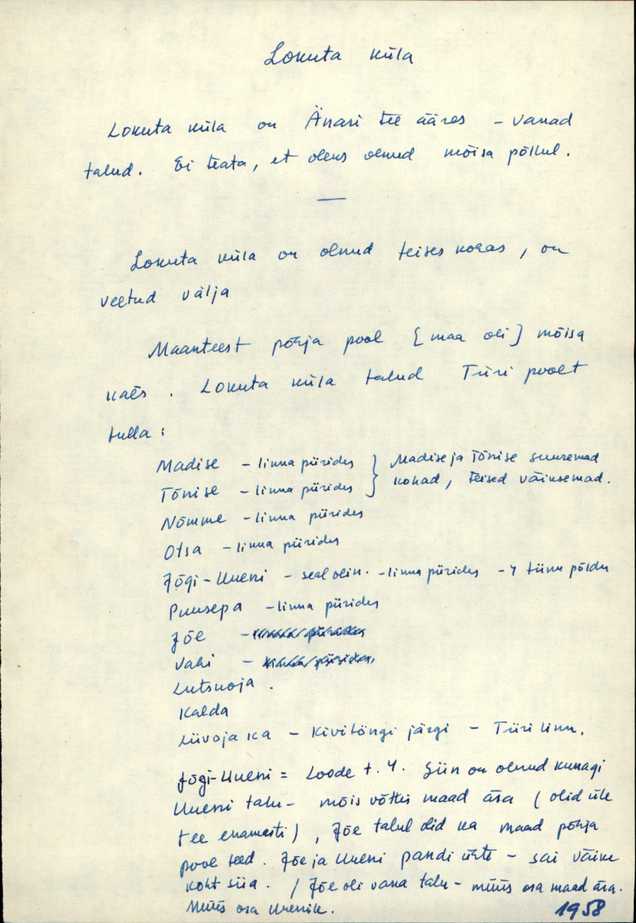 Lokuta küla
Lokuta küla on Änari tee ääres - vanad
talud. Ei teata, et oleks olnud mõisa põllul.
Lokuta küla on olnud teises kohas, on
veetud välja
Maanteest põhja pool [maa oli] mõisa
käes. Lokuta küla talud Türi poolt
tulla:
Madise - linna piirides } Madise ja Tõnise suuremad
Tõnise - linna piirides } kohad, teised väiksemad.
Nõmme - linna piirides
Otsa - linna piirides
Jõgi-Uueni - seal olin. - linna piirides - 4 tiinu põldu
Puusepa - linna piirides
Jõe - linna piirides
Vahi - linna piirides
Lutsuoja.
Kalda
Liivoja ka - Kivilõngi järgi - Türi linn.
Jõgi-Uueni = Loode t. 4. Siin on olnud kunagi
Uueni talu - mõis võttis maad ära (olid üle
tee enamasti), Jõe talul olid ka maad põhja
pool teed. Jõe ja Uueni pandi ühte - sai väike
koht siia. / Jõe oli vana talu - müüs osa maad ära.
Müüs osa Uuenile.
1958